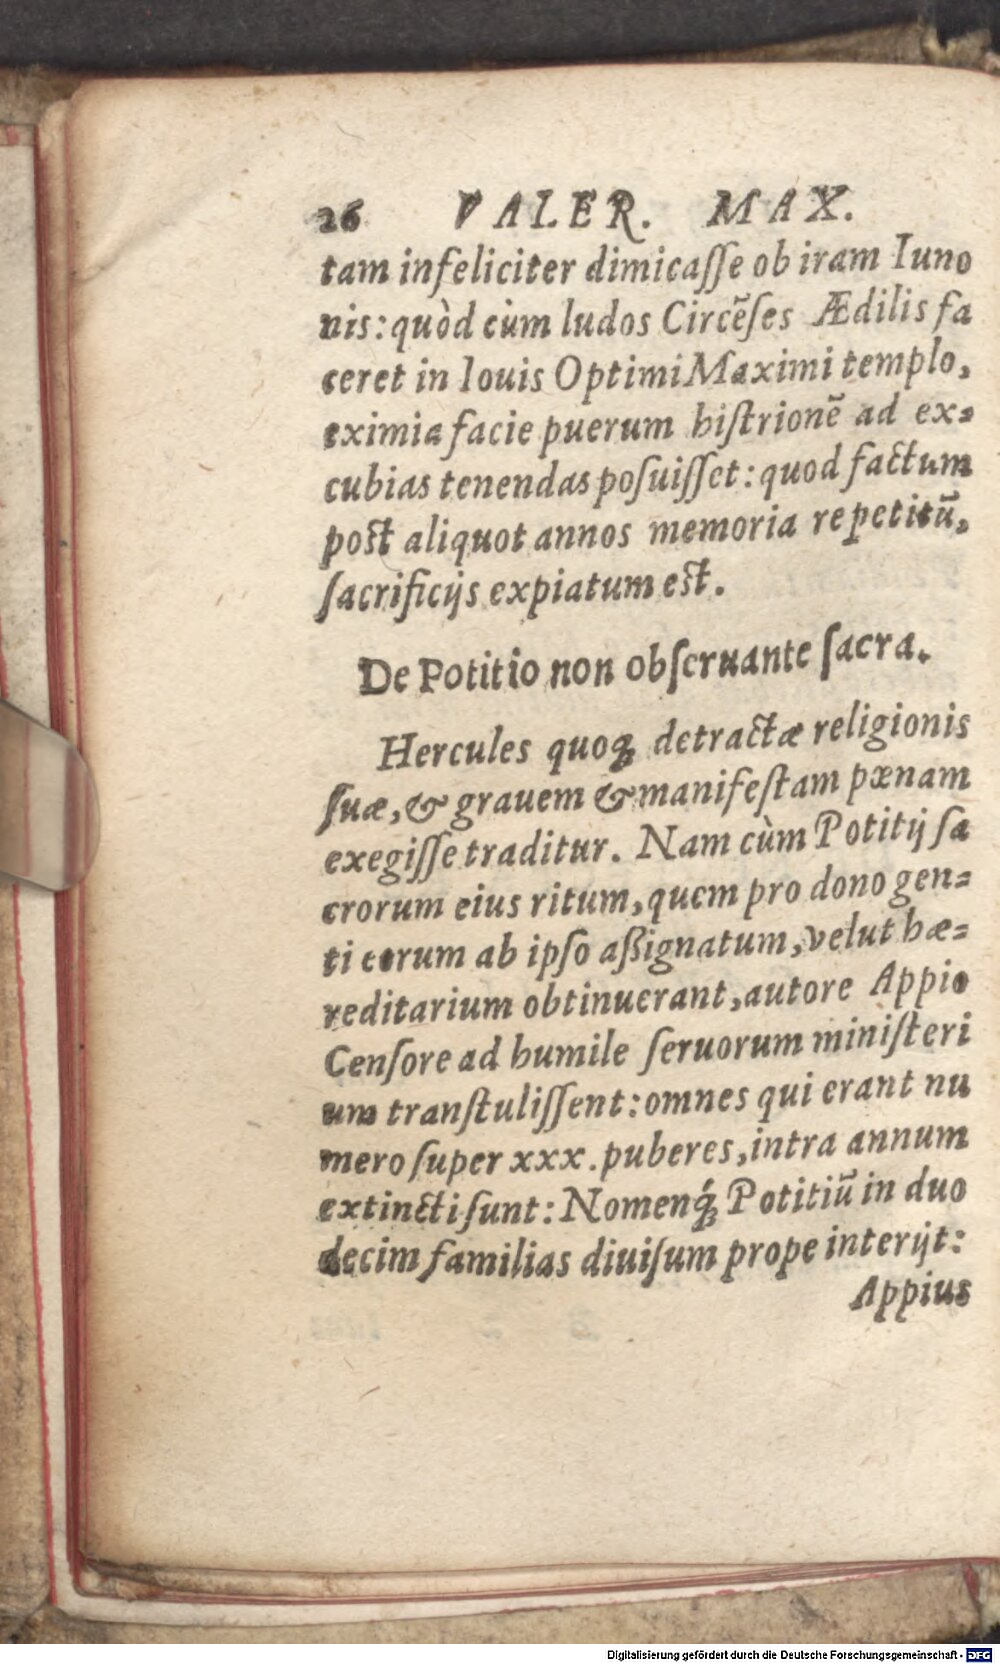 26 VALER. MAX.
tam infeliciter dimicaſſe ob iram Iuno
nis: quòd cùm ludos Circẽſes Ædilis fa
ceret in Iouis Optimi Maximi templo,
eximia facie puerum hiſtrionẽ ad ex-
cubias tenendas poſuiſſet: quod factum
poſt aliquot annos memoria repetitũ,
ſacrificijs expiatum eſt.
De Potitio non obſeruante ſacra.
Hercules quoq; detractæ religionis
ſuæ, & grauem & manifeſtam pœnam
exegiſſe traditur. Nam cùm Potitij ſa
crorum eius ritum, quem pro dono gen-
ti eorum ab ipſo aßignatum, velut hæ-
reditarium obtinuerant, autore Appio
Cenſore ad humile ſeruorum miniſteri
um tranſtuliſſent: omnes qui erant nu
mero ſuper xxx. puberes, intra annum
extincti ſunt: Nomenq́; Potitiũ in duo
decim familias diuiſum prope interijt:
Appius
Digitalisierung gefördert durch die Deutsche Forschungsgemeinschaft - DFG